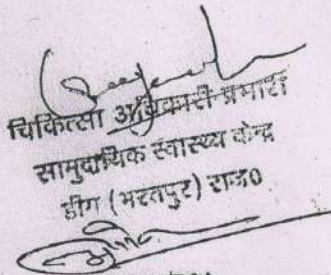 चिकित्सा अधिकारी प्रभारी
सामुदायिक स्वास्थ्य केन्द्र
डीग (भरतपुर) राज०